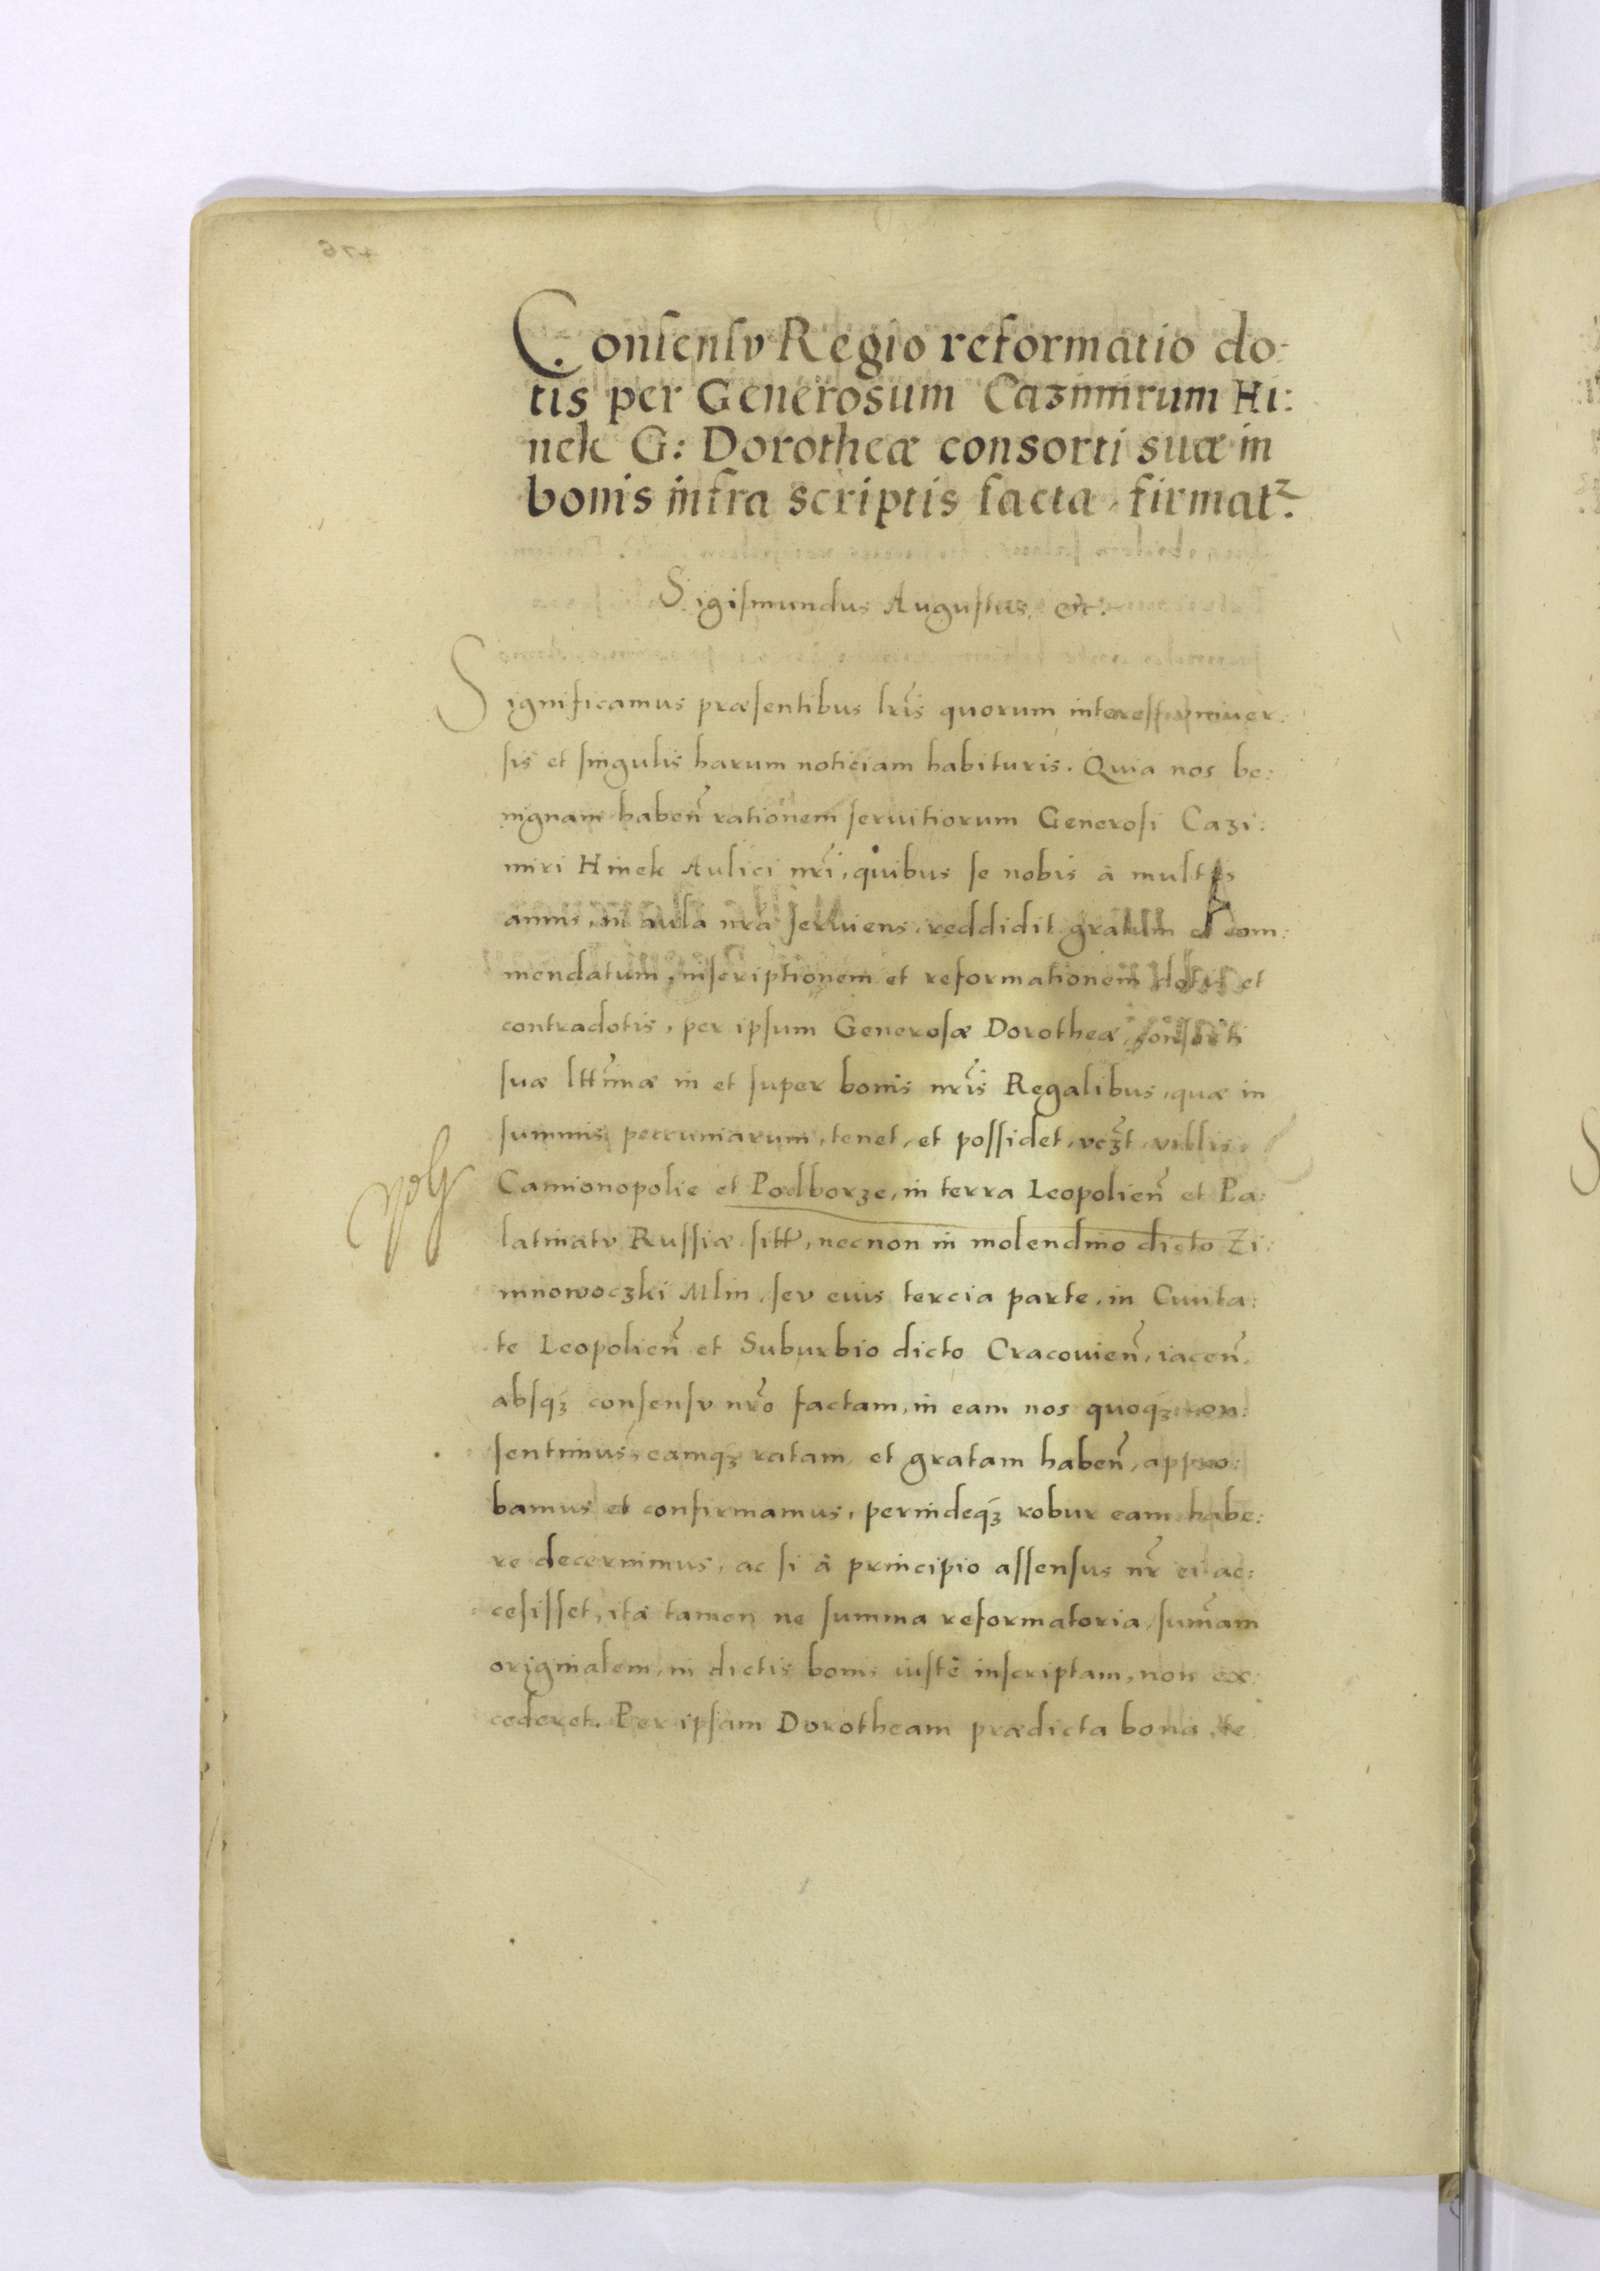 Consensv Regio reformatio do:
tis per Generosum Cazimirum Hi:
nek G: Dorotheæ consorti suæ in
bonis infra scriptis facta, firmatꝛ.
Sigismundus Augustus etc.
Significamus præsentibus lr̃is quorum interest vniuer:
sis et singulis harum noticiam habituris. Quia nos be:
nignam haben̄ rationem seruitiorum Generosi Cazi:
miri Hinek Aulici nr̃i, quibus se nobis à multis
annis, in aula nr̃a seruiens, reddidit gratum et com:
mendatum, inscriptionem et reformationem dotis et
contradotis, per ipsum Generosæ Dorotheæ, consorti
suæ ltt̃imæ in et super bonis nr̃is Regalibus, quæ in
summis pecuniarum, tenet, et possidet, vcꝫt villis
Camionopolie et Podborze, in terra Leopolien̄ et Pa:
latinatv Russiæ sitt̃, necnon in molendino dicto Zi:
mnowoczki Mlin, sev eius tercia parte, in Ciuita:
te Leopolien̄ et Suburbio dicto Cracouien̄, iacen̄,
absqꝫ consensv nr̃o factam, in eam nos quoqꝫ con:
sentimus, eamqꝫ ratam et gratam haben̄, appro:
bamus et confirmamus, perindeqꝫ robur eam habe:
re decernimus, ac si à principio assensus nr̃ ei ac:
cesisset, ità tamen ne summa reformatoria, sum̄am
originalem, in dictis bonis iustè inscriptam, non ex:
cederet. Per ipsam Dorotheam prædicta bona te